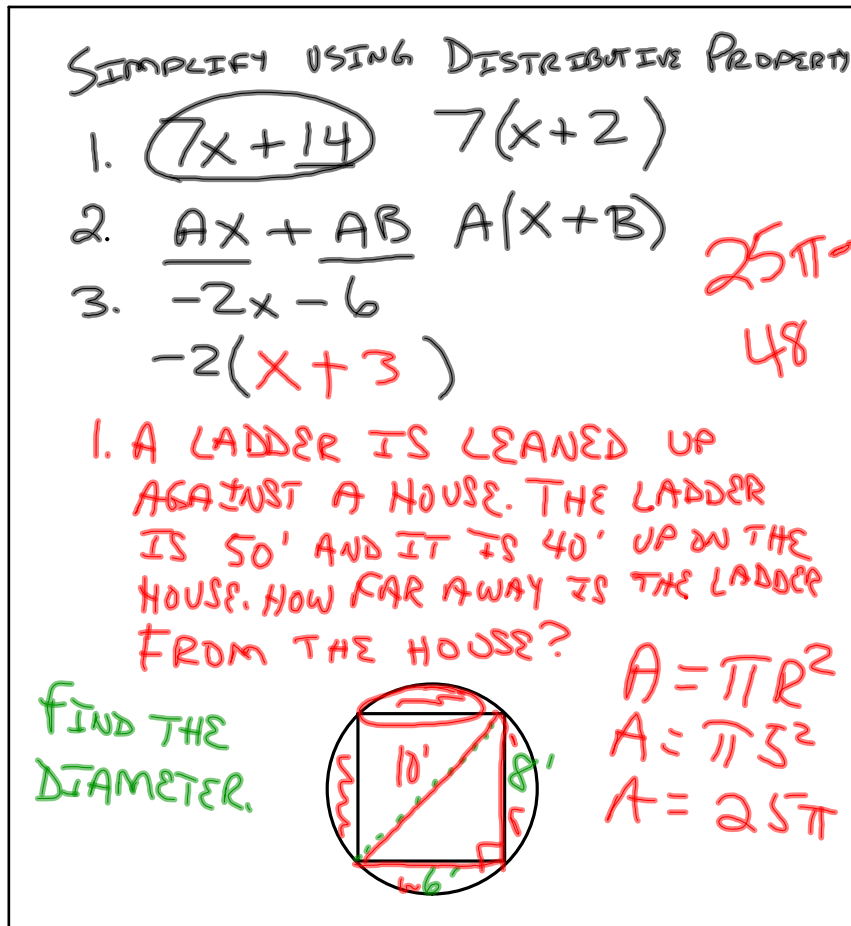 SIMPLIFY USING DISTRIBUTIVE PROPERTY
1. 7x + 14 7(x + 2)
2. AX + AB A(X + B)
3. -2x - 6
-2(x + 3)
25π -
48
1. A LADDER IS LEANED UP
AGAINST A HOUSE. THE LADDER
IS 50' AND IT IS 40' UP ON THE
HOUSE. HOW FAR AWAY IS THE LADDER
FROM THE HOUSE?
FIND THE
DIAMETER.
10'
8'
6'
A = πR²
A = π5²
A = 25π